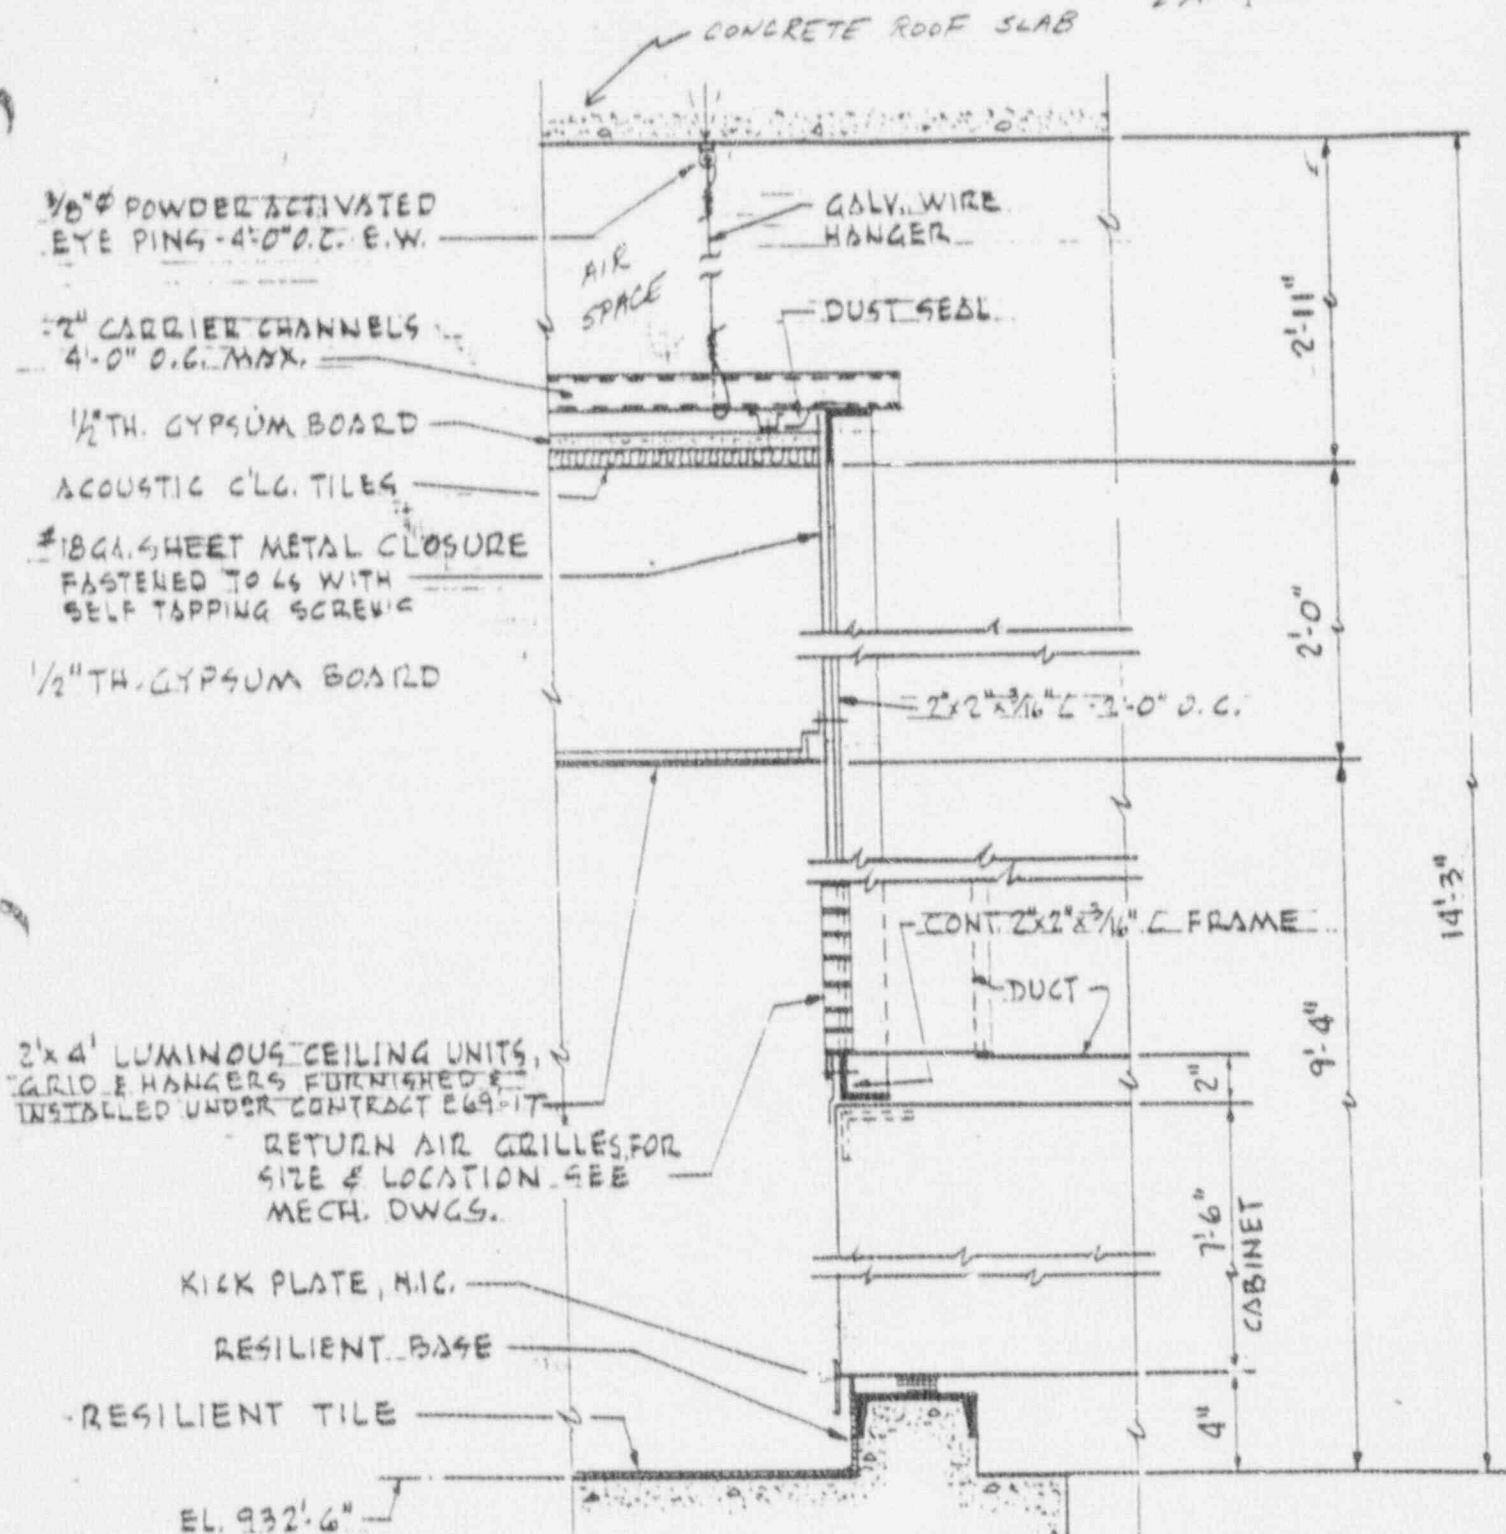 CONCRETE ROOF SLAB
3/8"Ø POWDER ACTIVATED
EYE PINS - 4'-0" O.C. E.W.
GALV. WIRE
HANGER
AIR
SPACE
2" CARRIER CHANNELS
4'-0" O.C. MAX.
DUST SEAL
2'-11"
1/2" TH. GYPSUM BOARD
ACOUSTIC C'LG. TILES
#18 GA. SHEET METAL CLOSURE
FASTENED TO LS WITH
SELF TAPPING SCREWS
2'-0"
1/2" TH. GYPSUM BOARD
2"x2"x3/16" L 2'-0" O.C.
14'-3"
CONT. 2"x2"x3/16" L FRAME
DUCT
9'-4"
2'x4' LUMINOUS CEILING UNITS,
GRID & HANGERS FURNISHED &
INSTALLED UNDER CONTRACT E69-17
2"
RETURN AIR GRILLES, FOR
SIZE & LOCATION SEE
MECH. DWGS.
7'-6"
CABINET
KICK PLATE, N.I.C.
RESILIENT BASE
RESILIENT TILE
4"
EL. 932'-6"